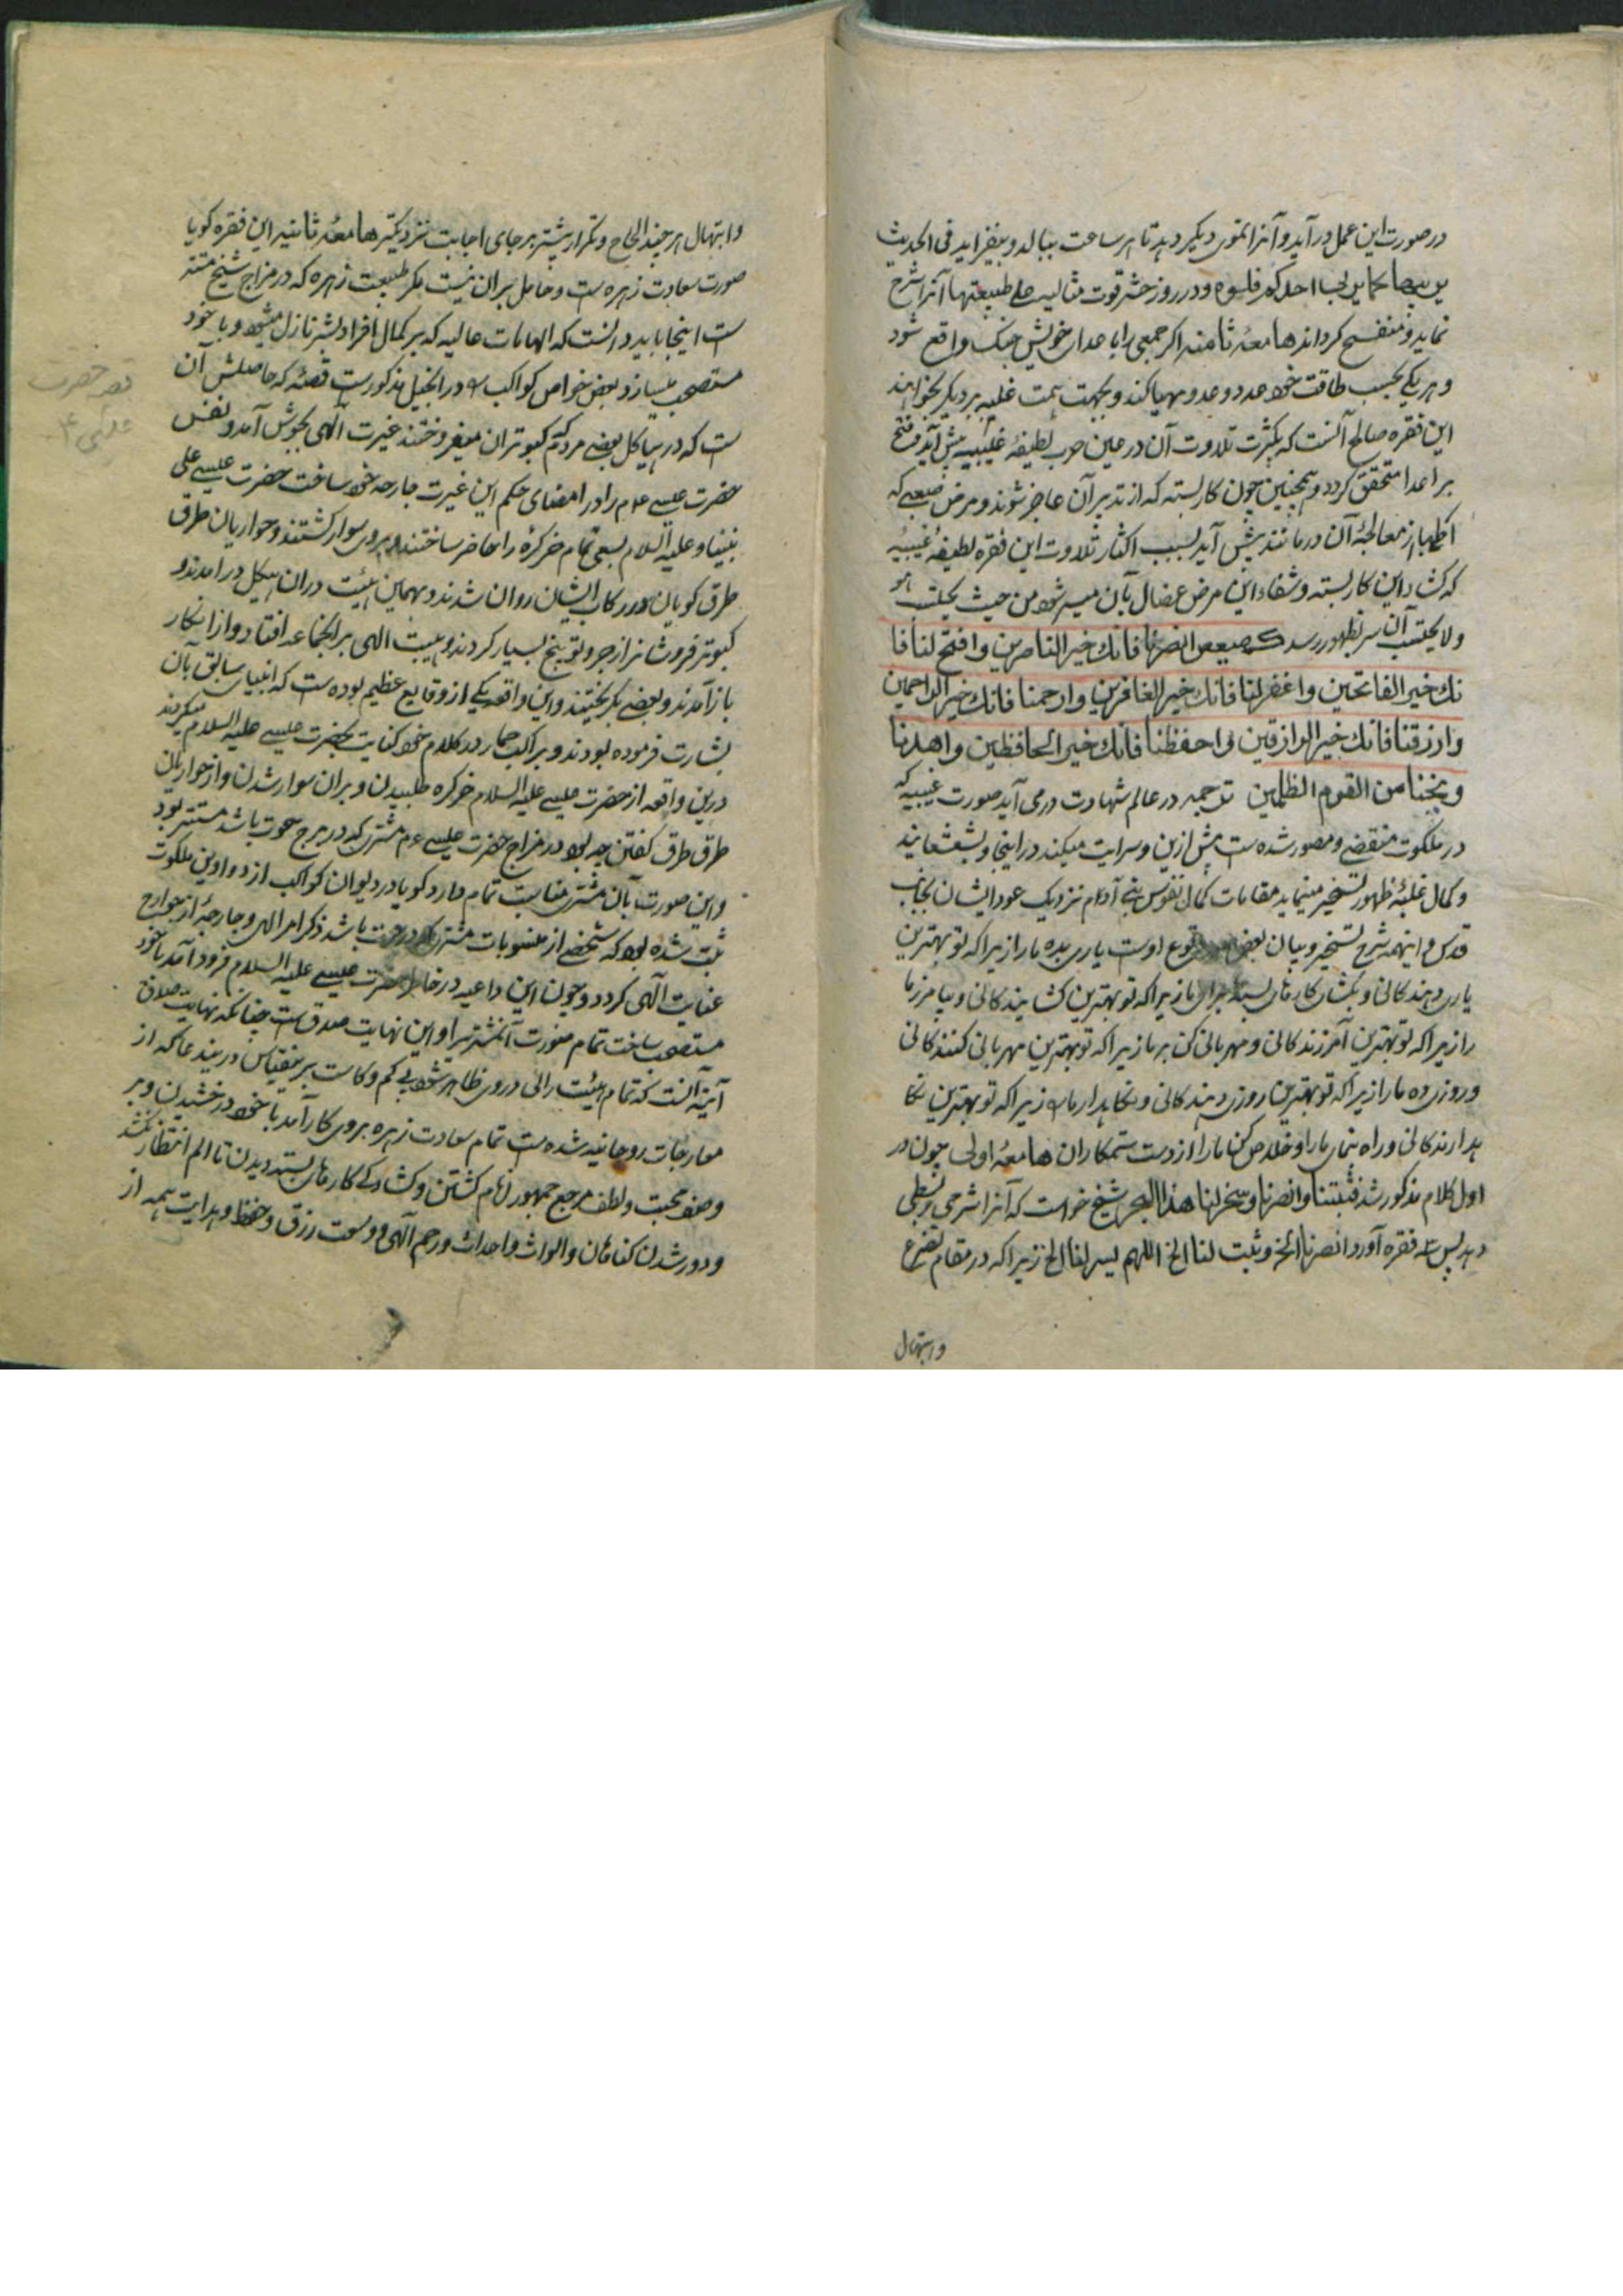 در صورت این عمل در آید و آنرا نموی دیگر دهد تا هر ساعت ببالد و بیفزاید فی الحدیث
یربیها کما یربی احدکم فلوه و در روز حشر قوت مثالیه علی طبیعتها آنرا شرح
نماید و منفسح گرداند هامعهٔ ثامنه اگر جمعی را با اعدای خویش جنگ واقع شود
و هر یکی بحسب طاقت خود عدد و عدد مهیا کند و بجهت همت غلبه بر دیگر بخواهند
این فقره صالح آنست که بکثرت تلاوت آن در عین حرب لطیفهٔ غیبیه پیش آید و فتح
بر اعدا متحقق گردد و همچنین چون کار بسته که از تدبیر آن عاجز شوند و مرض صعبی که
اطبا از معالجهٔ آن درمانند پیش آید بسبب اکثار تلاوت این فقره لطیفهٔ غیبیه
که کشاد این کار بسته و شفاء این مرض عضال بآن میسر شود من حیث یحتسب هو
ولا یحتسب آن سر بظهور رسد کهیعص انصرنا فانك خیر الناصرین وافتح لنا فا
نك خیر الفاتحین واغفر لنا فانك خیر الغافرین وارحمنا فانك خیر الراحمین
وارزقنا فانك خیر الرازقین واحفظنا فانك خیر الحافظین واهدنا
ونجنا من القوم الظلمین ترجمه در عالم شهادت در می آید صورت غیبیه که
در ملکوت منقضی و مصور شده است پیش ازین و سرایت میکند در اینجا و بشعشعانیه
و کمال غلبهٔ ظهور تسخیر مینماید مقامات کمال نفوس بنی آدم نزدیک عود ایشان بجناب
قدس و اینهمه شرح تسخیر و بیان بعض وقوع اوست یاری بده ما را زیرا که تو بهترین
یاری دهندکانی و بکشای کارهای بسته برای ما زیرا که تو بهترین کشایندکانی و بیامرز ما
را زیرا که تو بهترین آمرزندکانی و مهربانی کن بر ما زیرا که تو بهترین مهربانی کنندکانی
و روزی ده ما را زیرا که تو بهترین روزی دهندکانی و نکاهدار ما را زیرا که تو بهترین نکا
هدارندکانی و راه نمای ما را و خلاص کن ما را از دست ستمکاران هامعهٔ اولی چون در
اول کلام مذکور شد فثبتنا وانصرنا وسخر لنا هذا البحر شیخ خواست که آنرا شرحی و بسطی
دهد پس سه فقره آورد انصرنا الخ وثبت لنا الخ اللهم یسر لنا الخ زیرا که در مقام تضرع
وابتهال
وابتهال هر چند الحاح و تکرار بیشتر بر جای اجابت نزدیکتر هامعهٔ ثانیه این فقره کویا
صورت سعادت زهره است و حامل بر آن نیست مکر طبیعت زهره که در مزاج شیخ مستتر
است اینجا باید دانست که الهامات حالیه که بر کمال افراد بشر نازل میشود با خود
مستصحب میسازد بعض خواص کواکب را در انجیل مذکورست قصهٔ که حاصلش آن
است که در هیاکل بعضی مردم کبوتران میفروختند غیرت الهی بجوش آمد و نفس
حضرت عیسی عم را در امضای حکم این غیرت جارحه خود ساخت حضرت عیسی علی
نبینا و علیه السلام بسعی تمام خر کرهٔ را حاضر ساختند و بر وی سوار کشتند و حواریان طرق
طرق کویان در رکاب ایشان روان شدند و بهمین هیئت در آن هیکل در آمدند و
کبوتر فروشانرا زجر و توبیخ بسیار کردند و هیبت الهی بر آنجماعه افتاد و از انکار
باز آمدند و بعضی بگریختند و این واقعه یکی از وقایع عظیم بوده است که انبیای سابق بآن
بشارت فرموده بودند و براکب حمار در کلام خود کنایت بحضرت عیسی علیه السلام میکردند
درین واقعه از حضرت عیسی علیه السلام خر کره طلبیدن و بر آن سوار شدن و از حواریان
طرق طرق کفتن چه بود در مزاج حضرت عیسی عم مشتری که در برج حوت باشد مستتر بود
و این صورت بآن مشتری مناسبت تمام دارد کویا در دیوان کواکب از دواوین ملکوت
ثبت شده بود که شخصی از منسوبات مشتری که در حوت باشد ذکر امر الهی و جارحهٔ از جوارح
عنایت الهی کردد و چون این داعیه در خاطر حضرت عیسی علیه السلام فرود آمد با خود
مستصحب ساخت تمام صورت آنمشتری را و این نهایت صدق است چنانکه نهایت صدق
آینه آنست که تمام هیئت رائی در وی ظاهر شود بی کم و کاست برینقیاس درین دعا که از
معارجات روحانیه شده است تمام سعادت زهره بروی کار آمد با خود درخشیدن و بر
وصف محبت و لطف مرجع جمهور انام کشتن و کشادکی کارهای بسته دیدن تا الم انتظار نکشد
و دور شدن کناهان و الواث و احداث و رحم الهی و وسعت رزق و حفظ و هدایت همه از
قصه حضرت